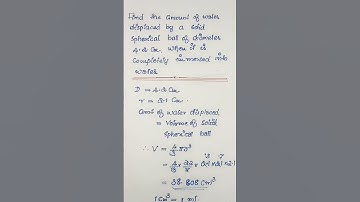 Find the amount of water
displaced by a solid
spherical ball of diameter
4.2 cm, when it is
completely immersed into
water
D = 4.2 cm
r = 2.1 cm
Amt of water displaced
= Volume of solid
spherical ball
∴ V = 4/3 πr³
= 38.808 cm³